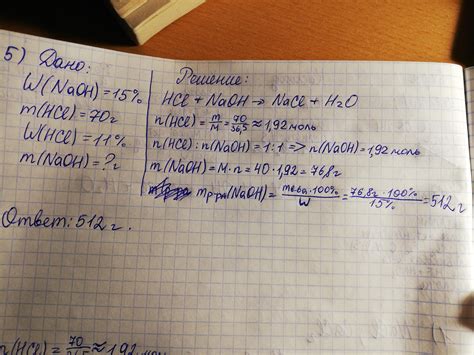 5) Дано:
W(NaOH)=15%
m(HCl)=70г
W(HCl)=11%
m(NaOH)=?г
Решение:
HCl + NaOH → NaCl + H₂O
n(HCl)=m/M=70/36,5≈1,92моль
n(HCl):n(NaOH)=1:1=>n(NaOH)=1,92моль
m(NaOH)=M·n=40·1,92=76,8г
mр-ра(NaOH)=mв-ва·100%/W=76,8г·100%/15%=512г
Ответ: 512г.
n(HCl)=70/36,5≈1,92